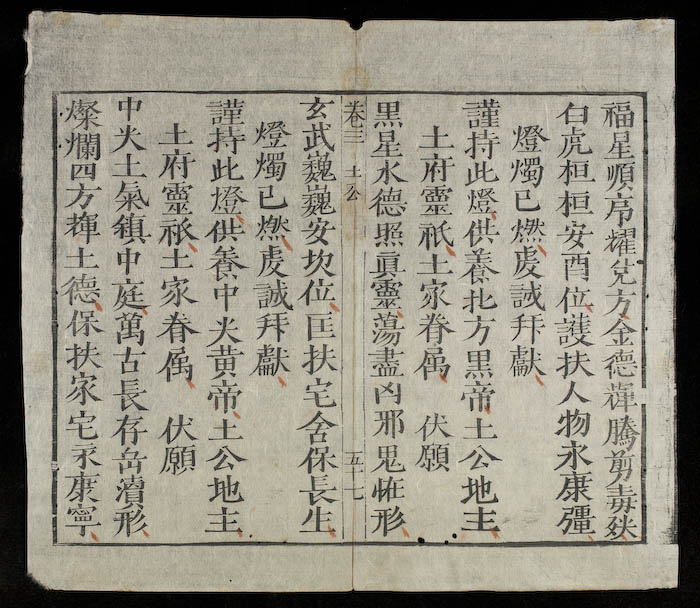 福星順耀兌方金德輝騰剪毒殃
白虎桓桓安酉位護扶人物永康彊
燈燭已燃虔誠拜獻
謹持此燈供養北方黑帝土公地主
土府靈祇土家眷属 伏願
黑星水德照眞靈蕩盡凶邪鬼恠形
卷三 土公 五十七
玄武巍巍安坎位匡扶宅舍保長生
燈燭已燃虔誠拜獻
謹持此燈供養中央黄帝土公地主
土府靈祇土家眷属 伏願
中央土氣鎮中庭萬古長存岳瀆形
燦爛四方輝土德保扶家宅永康寧